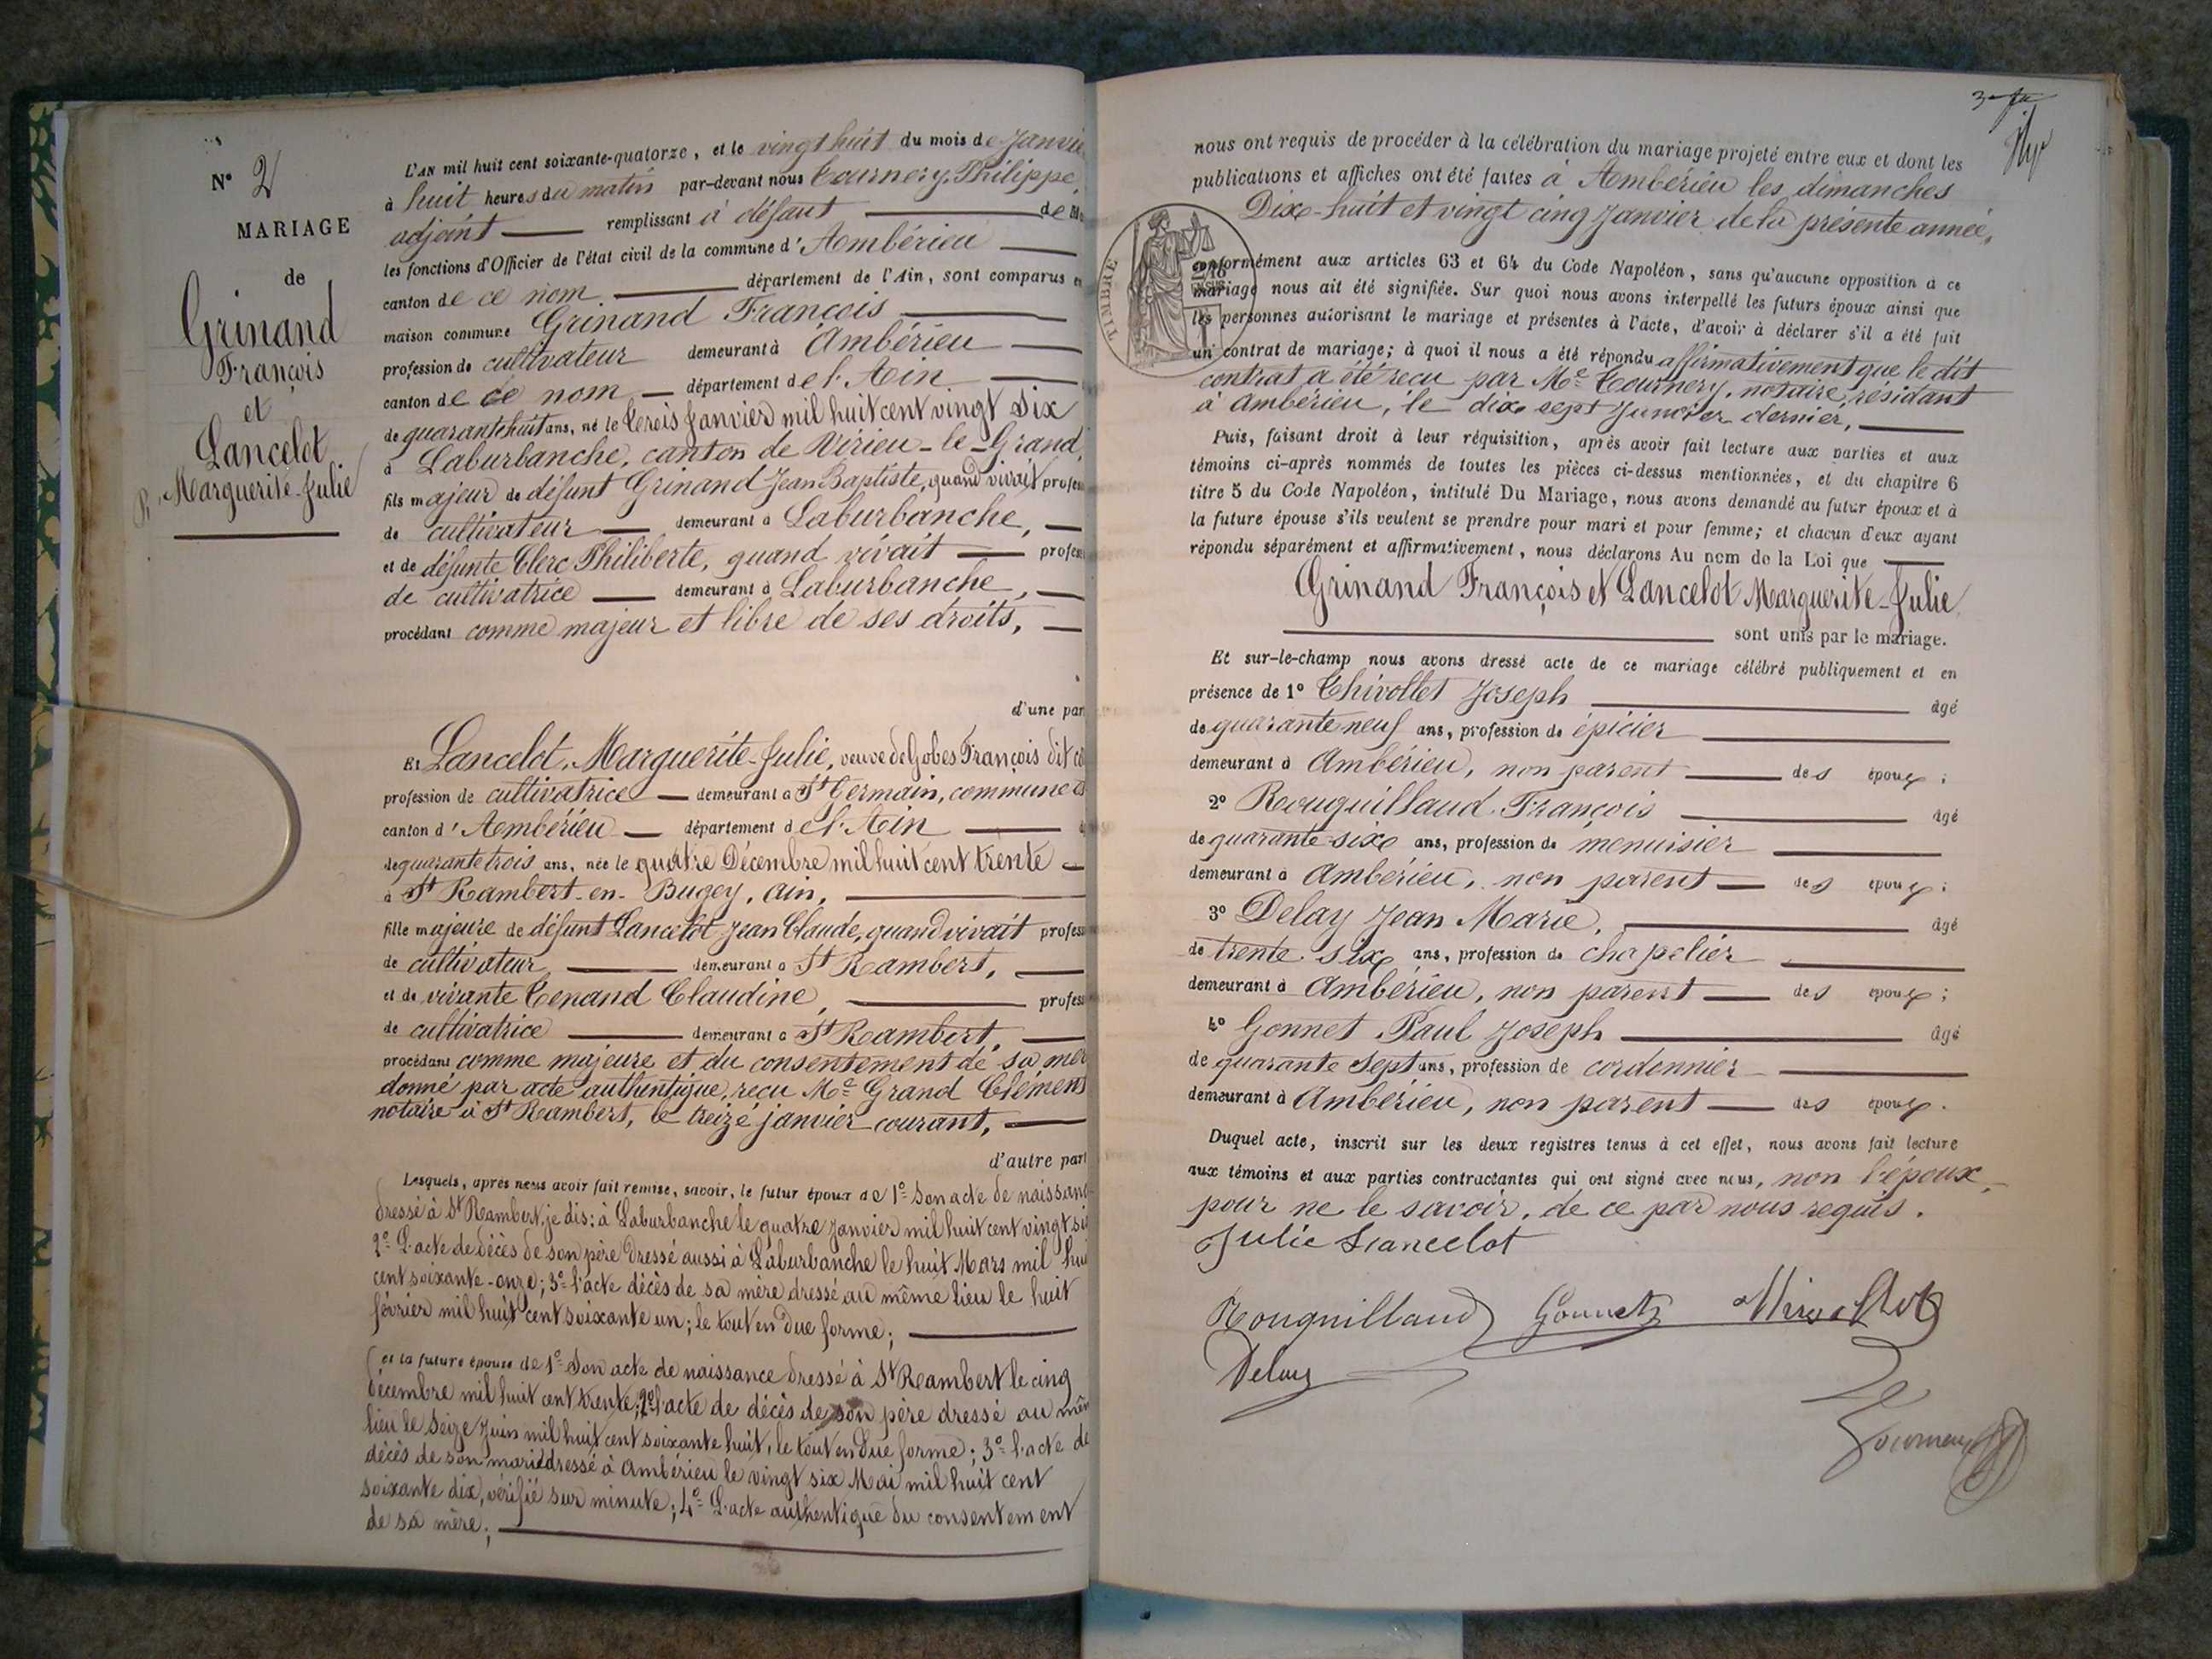 N° 2
MARIAGE
de
Grinand
François
et
Lancelot
Marguerite-Julie
L'AN mil huit cent soixante-quatorze, et le vingt huit du mois de Janvie
à huit heures du matin par-devant nous Tournery Philippe,
adjoint remplissant à défaut de M
les fonctions d'Officier de l'état civil de la commune d'Ambérieu
canton de ce nom département de l'Ain, sont comparus en
maison commune Grinand François
profession de cultivateur demeurant à Ambérieu
canton de ce nom département de l'Ain
de quarante huit ans, né le trois Janvier mil huit cent vingt six
à Laburbanche, canton de Virieu-le-Grand,
fils majeur de défunt Grinand Jean Baptiste, quand vivait profess
de cultivateur demeurant à Laburbanche,
et de défunte Clerc Philiberte, quand vivait profess
de cultivatrice demeurant à Laburbanche,
procédant comme majeur et libre de ses droits,
d'une par
Et Lancelot, Marguerite-Julie, veuve de Gobes François dit
profession de cultivatrice demeurant à St Germain, commune
canton d'Ambérieu département de l'Ain
de quarante trois ans, née le quatre Décembre mil huit cent trente
à St Rambert-en-Bugey, Ain,
fille majeure de défunt Lancelot Jean Claude, quand vivait profess
de cultivateur demeurant à St Rambert,
et de vivante Tenand Claudine, profess
de cultivatrice demeurant à St Rambert,
procédant comme majeure et du consentement de sa mèr
donné par acte authentique, reçu Me Grand Clément
notaire à St Rambert, le treize janvier courant,
d'autre part
Lesquels, après nous avoir fait remise, savoir, le futur époux de 1° Son acte de naissanc
dressé à St Rambert, je dis: à Laburbanche le quatre Janvier mil huit cent vingt si
2° L'acte de décès de son père dressé aussi à Laburbanche le huit Mars mil hui
cent soixante-onze; 3° l'acte décès de sa mère dressé au même lieu le huit
février mil huit cent soixante un; le tout en due forme;
et la future épouse de 1° Son acte de naissance dressé à St Rambert le cinq
décembre mil huit cent trente; 2° l'acte de décès de son père dressé au mêm
lieu le Seize Juin mil huit cent soixante huit, le tout en due forme; 3° l'acte de
décès de son mari dressé à Ambérieu le vingt six Mai mil huit cent
soixante dix, vérifié sur minute; 4° L'acte authentique du consentement
de sa mère;
nous ont requis de procéder à la célébration du mariage projeté entre eux et dont les
publications et affiches ont été faites à Ambérieu les dimanches
Dix-huit et vingt cinq Janvier de la présente année,
TIMBRE
conformément aux articles 63 et 64 du Code Napoléon, sans qu'aucune opposition à ce
mariage nous ait été signifiée. Sur quoi nous avons interpellé les futurs époux ainsi que
les personnes autorisant le mariage et présentes à l'acte, d'avoir à déclarer s'il a été fait
un contrat de mariage; à quoi il nous a été répondu affirmativement que le dit
contrat a été reçu par Me Tournery, notaire, résidant
à Ambérieu, le dix sept Janvier dernier,
Puis, faisant droit à leur réquisition, après avoir fait lecture aux parties et aux
témoins ci-après nommés de toutes les pièces ci-dessus mentionnées, et du chapitre 6
titre 5 du Code Napoléon, intitulé Du Mariage, nous avons demandé au futur époux et à
la future épouse s'ils veulent se prendre pour mari et pour femme; et chacun d'eux ayant
répondu séparément et affirmativement, nous déclarons Au nom de la Loi que
Grinand François et Lancelot Marguerite-Julie
sont unis par le mariage.
Et sur-le-champ nous avons dressé acte de ce mariage célébré publiquement et en
présence de 1° Thivollet Joseph âgé
de quarante neuf ans, profession de épicier
demeurant à Ambérieu, non parent des époux;
2° Rouquillaud François âgé
de quarante six ans, profession de menuisier
demeurant à Ambérieu, non parent des époux;
3° Delay Jean Marie, âgé
de trente six ans, profession de chapelier
demeurant à Ambérieu, non parent des époux;
4° Gonnet Paul Joseph âgé
de quarante sept ans, profession de cordonnier
demeurant à Ambérieu, non parent des époux.
Duquel acte, inscrit sur les deux registres tenus à cet effet, nous avons fait lecture
aux témoins et aux parties contractantes qui ont signé avec nous, non l'époux
pour ne le savoir, de ce par nous requis.
Julie Lancelot
Rouquillaud Gonnet Thivollet
Delay
Tournery